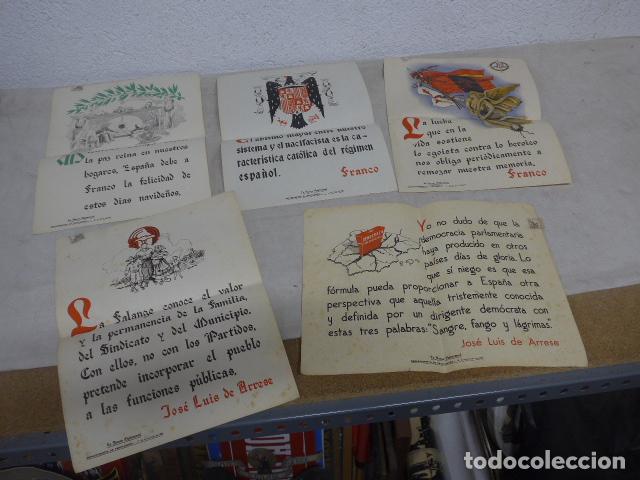 la paz reina en nuestros
hogares, España debe a
Franco la felicidad de
estos días navideños.
El abismo mayor entre nuestro
sistema y el nacifacista es la ca-
racterística católica del régimen
español.
Franco
La lucha
que en la
vida sostiene
lo egoísta contra lo heroico
nos obliga periódicamente a
remozar nuestra memoria.
Franco
La Falange conoce el valor
y la permanencia de la Familia,
del Sindicato y del Municipio.
Con ellos, no con los Partidos,
pretende incorporar el pueblo
a las funciones públicas.
José Luis de Arrese
Yo no dudo de que la
democracia parlamentaria
haya producido en otros
países días de gloria. Lo
que sí niego es que esa
fórmula pueda proporcionar a España otra
perspectiva que aquella tristemente conocida
y definida por un dirigente demócrata con
estas tres palabras: "Sangre, fango y lágrimas."
José Luis de Arrese
todocoleccion.net